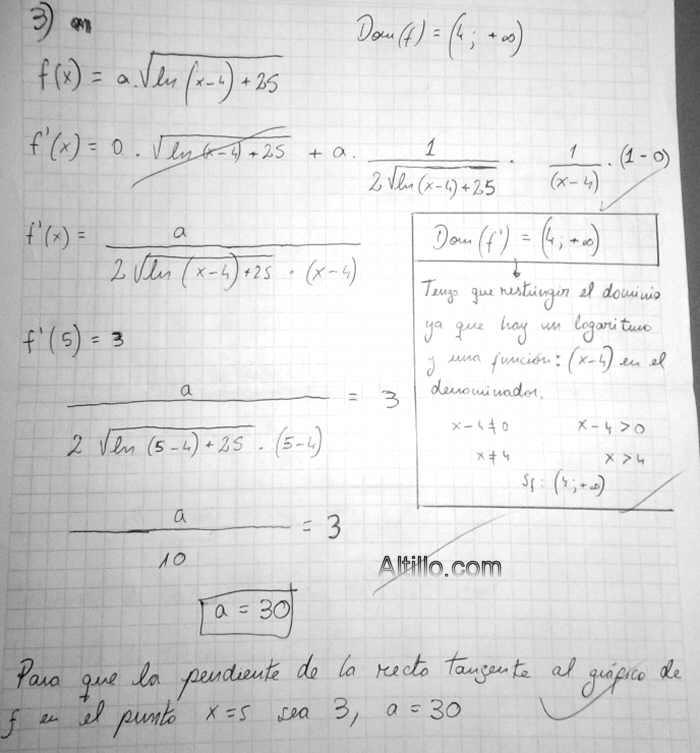 3)
Dom(f) = (4; +∞)
f(x) = a.√(ln(x-4)+25)
f'(x) = 0 . √(ln(x-4)+25) + a . 1/(2√(ln(x-4)+25)) . 1/(x-4) . (1-0)
f'(x) = a/(2√(ln(x-4)+25) . (x-4))
Dom(f') = (4; +∞)
Tengo que restringir el dominio
ya que hay un logaritmo
y una función: (x-4) en el
denominador.
x-4≠0 x-4>0
x≠4 x>4
Sf: (4; +∞)
f'(5) = 3
a/(2√(ln(5-4)+25) . (5-4)) = 3
a/10 = 3
Altillo.com
a = 30
Para que la pendiente de la recta tangente al gráfico de
f en el punto x=5 sea 3, a = 30